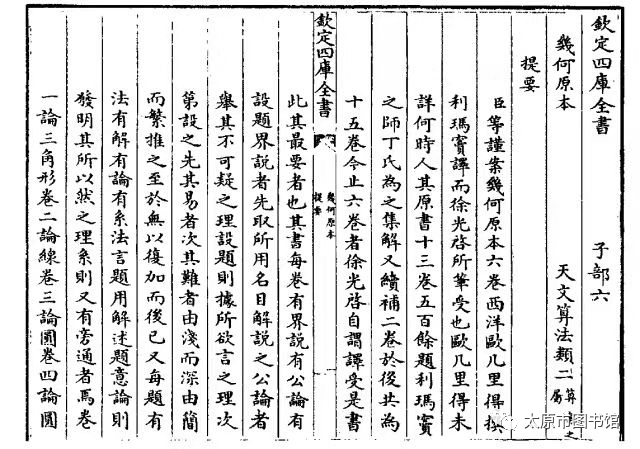 欽定四庫全書 子部六
幾何原本 天文算法類二 算書之屬
提要
臣等謹案幾何原本六卷西洋歐几里得撰
利瑪竇譯而徐光啓所筆受也歐几里得未
詳何時人其原書十三卷五百餘題利瑪竇
之師丁氏為之集解又續補二卷於後共為
十五卷今止六卷者徐光啓自謂譯受是書
欽定四庫全書
幾何原本
提要
此其最要者也其書每卷有界說有公論有
設題界說者先取所用名目解說之公論者
舉其不可疑之理設題則據所欲言之理次
第設之先其易者次其難者由淺而深由簡
而繁推之至於無以復加而後已又每題有
法有解有論有系法言題用解述題意論則
發明其所以然之理系則又有旁通者焉卷
一論三角形卷二論線卷三論圓卷四論圓
太原市图书馆